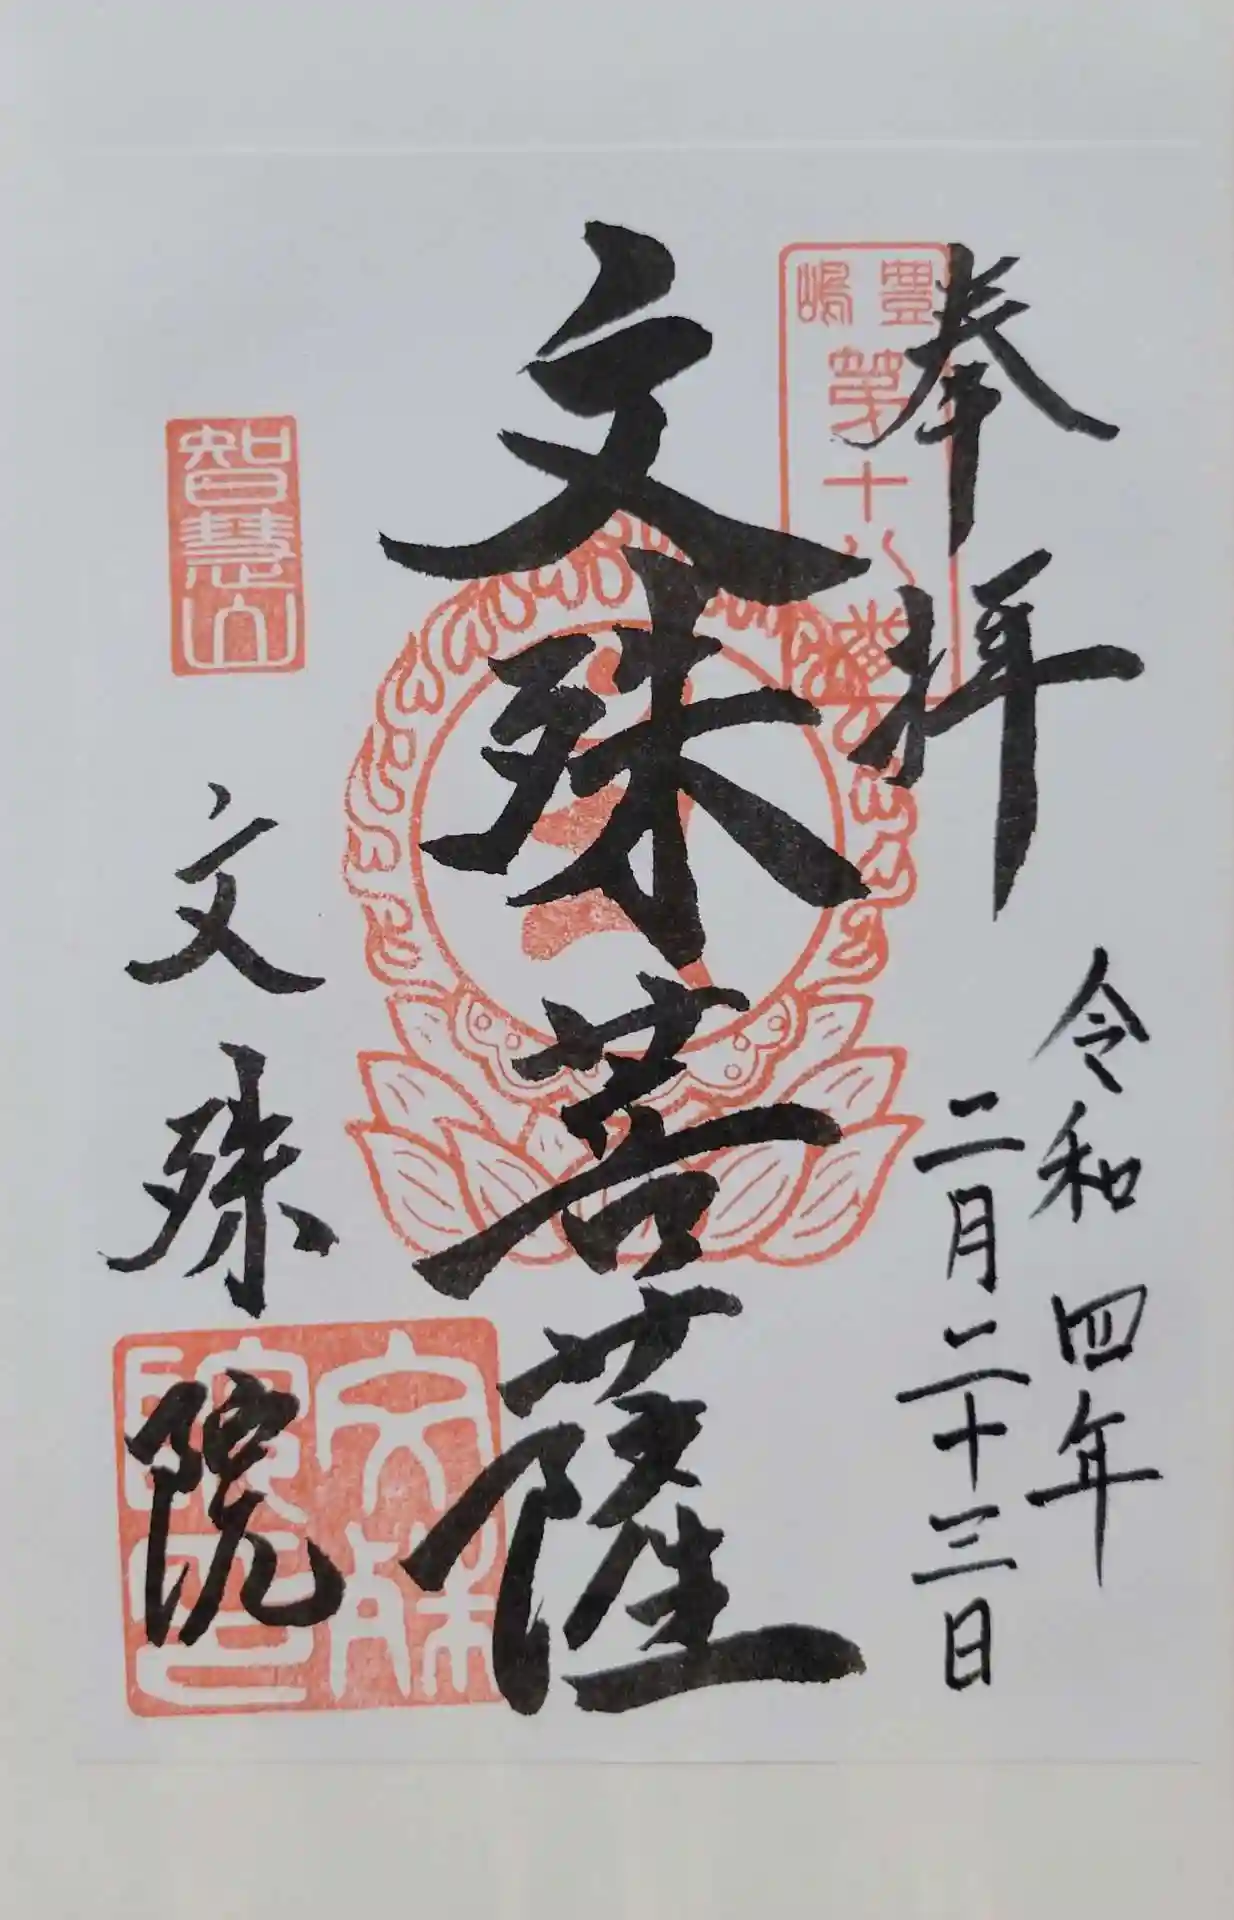 奉拝
令和四年
二月二十三日
豊嶋
第十八番
文殊菩薩
智慧山
文殊院
文殊
院印